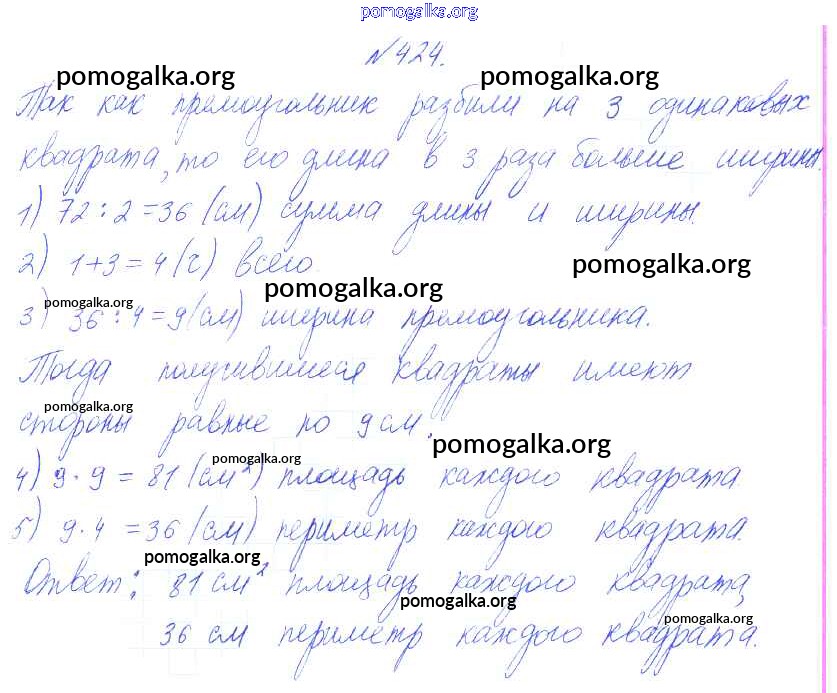 pomogalka.org
№424.
pomogalka.org pomogalka.org
Так как прямоугольник разбили на 3 одинаковых
квадрата, то его длина в 3 раза больше ширины.
1) 72 : 2 = 36 (см) сумма длины и ширины.
2) 1+3 = 4 (ч) всего.
pomogalka.org
pomogalka.org
pomogalka.org
3) 36 : 4 = 9 (см) ширина прямоугольника.
Тогда получившиеся квадраты имеют
pomogalka.org
стороны равные по 9 см.
pomogalka.org
pomogalka.org
4) 9 · 9 = 81 (см²) площадь каждого квадрата
5) 9 · 4 = 36 (см) периметр каждого квадрата.
pomogalka.org
Ответ: 81 см² площадь каждого квадрата,
pomogalka.org
pomogalka.org
36 см периметр каждого квадрата.